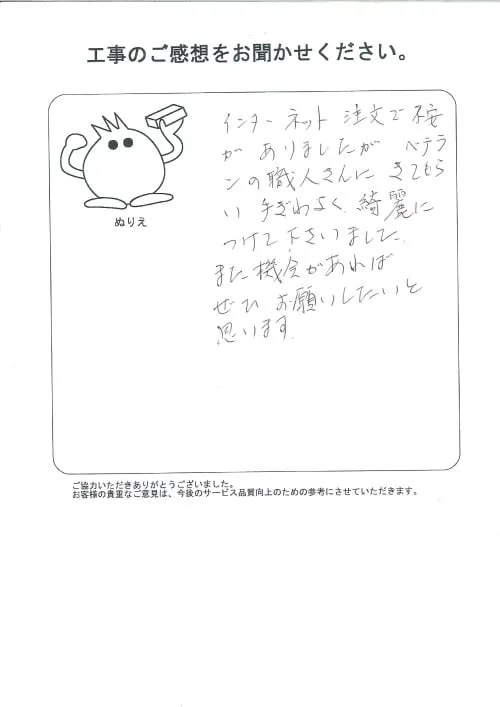 工事のご感想をお聞かせください。
ぬりえ
インターネット 注文で 不安
が ありましたが ベテラ
ンの職人さんに きてもら
い 手ぎわよく、綺麗に
つけて下さいました。
また機会があれば
ぜひ お願いしたいと
思います。
ご協力いただきありがとうございました。
お客様の貴重なご意見は、今後のサービス品質向上のための参考にさせていただきます。